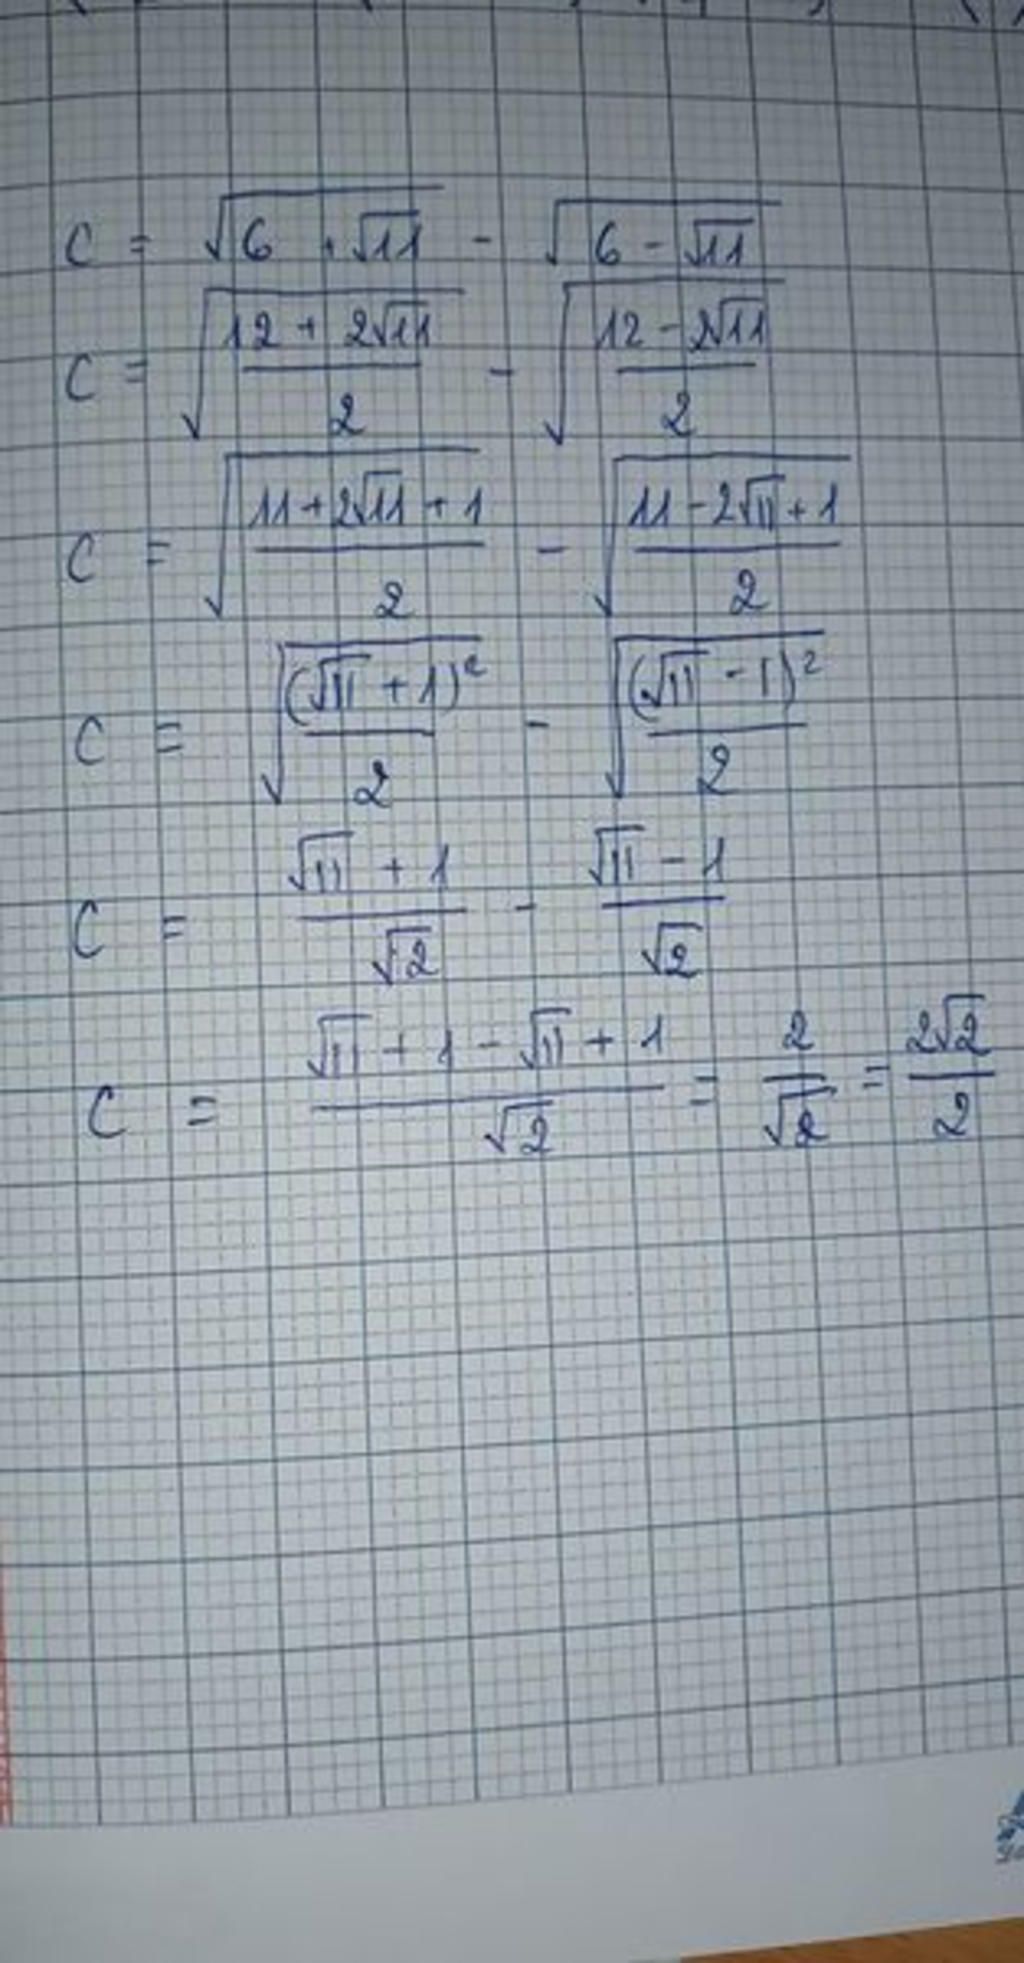 C = √(6 + √11) - √(6 - √11)
C = √((12 + 2√11)/2) - √((12 - 2√11)/2)
C = √((11 + 2√11 + 1)/2) - √((11 - 2√11 + 1)/2)
C = √((√11 + 1)²/2) - √((√11 - 1)²/2)
C = (√11 + 1)/√2 - (√11 - 1)/√2
C = (√11 + 1 - √11 + 1)/√2 = 2/√2 = 2√2/2